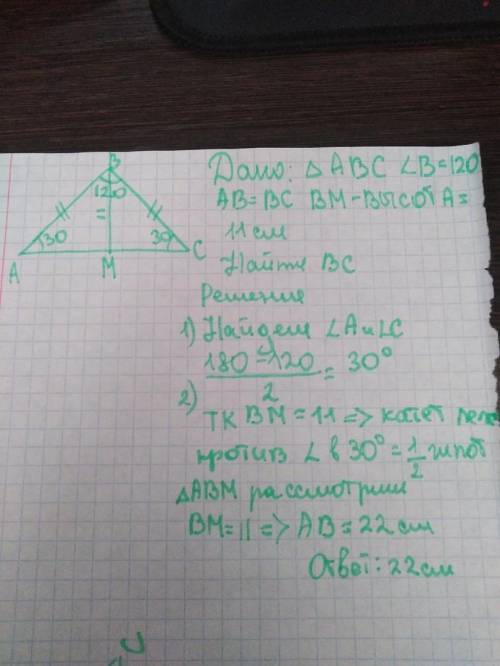 B
120
30
30
A
M
C
Дано: △ ABC ∠B=120
AB=BC BM-ВысотА=
11 см
Найти BC
Решение
1) Найдем ∠A и ∠C
180-120
2
= 30°
2)
тк BM=11 => катет леж
против ∠ в 30° = 1/2 гипот
△ABM рассмотрим
BM=11 => AB=22 см
Ответ: 22 см